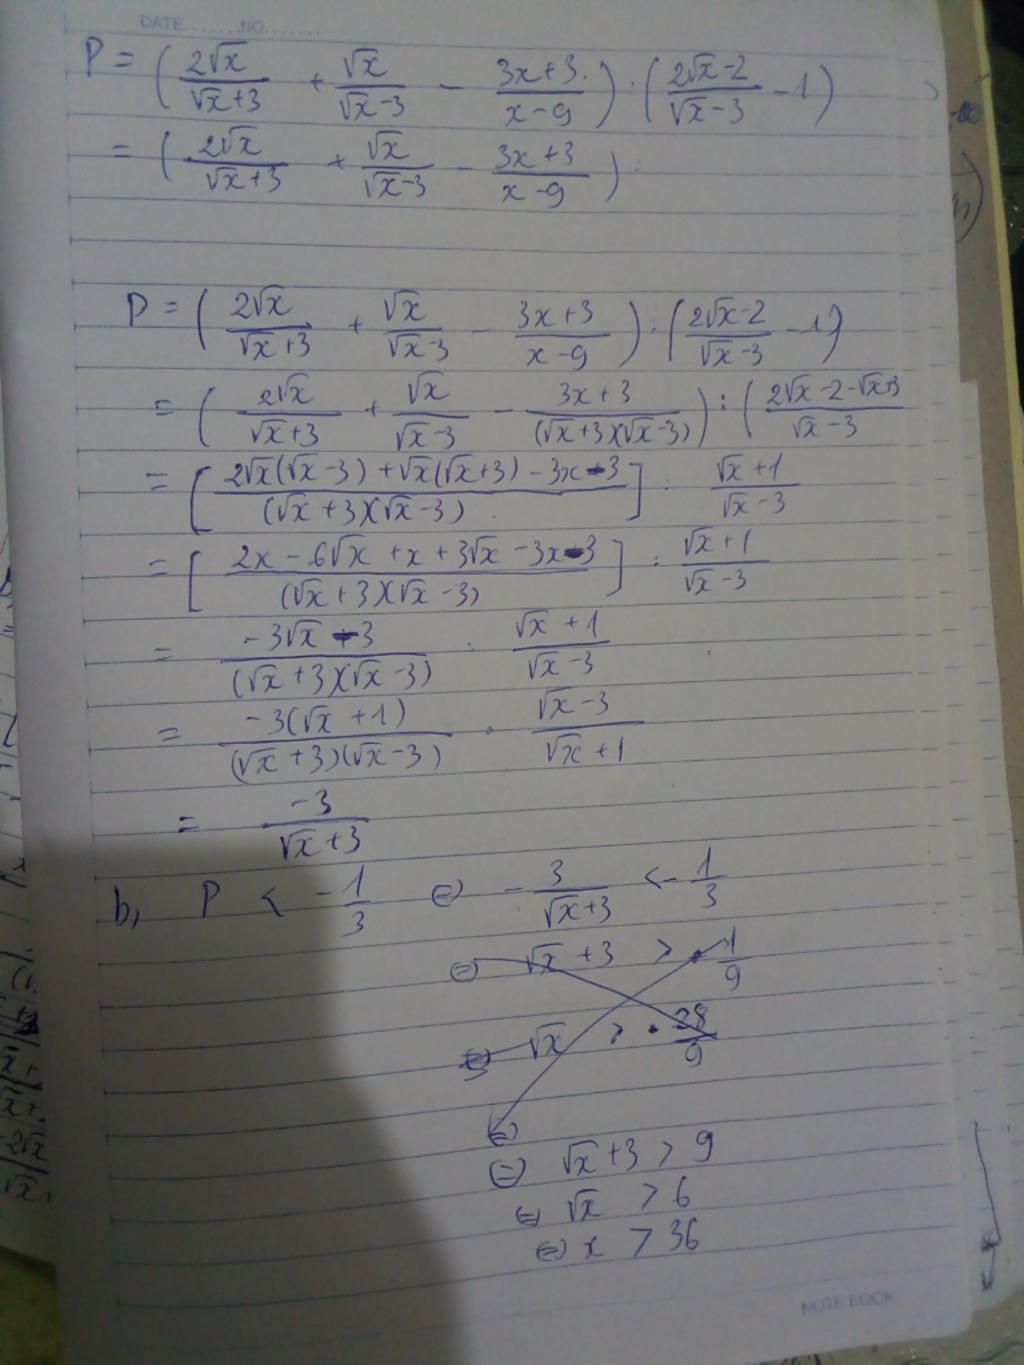 DATE........NO........
P = ( 2√x / √x+3 + √x / √x-3 - 3x+3 / x-9 ) : ( 2√x-2 / √x-3 - 1 )
= ( 2√x / √x+3 + √x / √x-3 - 3x+3 / x-9 ) :
P = ( 2√x / √x+3 + √x / √x-3 - 3x+3 / x-9 ) : ( 2√x-2 / √x-3 - 1 )
= ( 2√x / √x+3 + √x / √x-3 - 3x+3 / (√x+3)(√x-3) ) : ( 2√x-2-√x+3 / √x-3
= [ 2√x(√x-3) + √x(√x+3) - 3x-3 / (√x+3)(√x-3) ] : √x+1 / √x-3
= [ 2x - 6√x + x + 3√x - 3x-3 / (√x+3)(√x-3) ] : √x+1 / √x-3
= -3√x-3 / (√x+3)(√x-3) : √x+1 / √x-3
= -3(√x+1) / (√x+3)(√x-3) . √x-3 / √x+1
= -3 / √x+3
b, P < -1/3 ⇔ - 3 / √x+3 < - 1/3
⇔ √x+3 > 1/9
⇔ √x > 28/9
⇔
⇔ √x+3 > 9
⇔ √x > 6
⇔ x > 36
NOTE BOOK